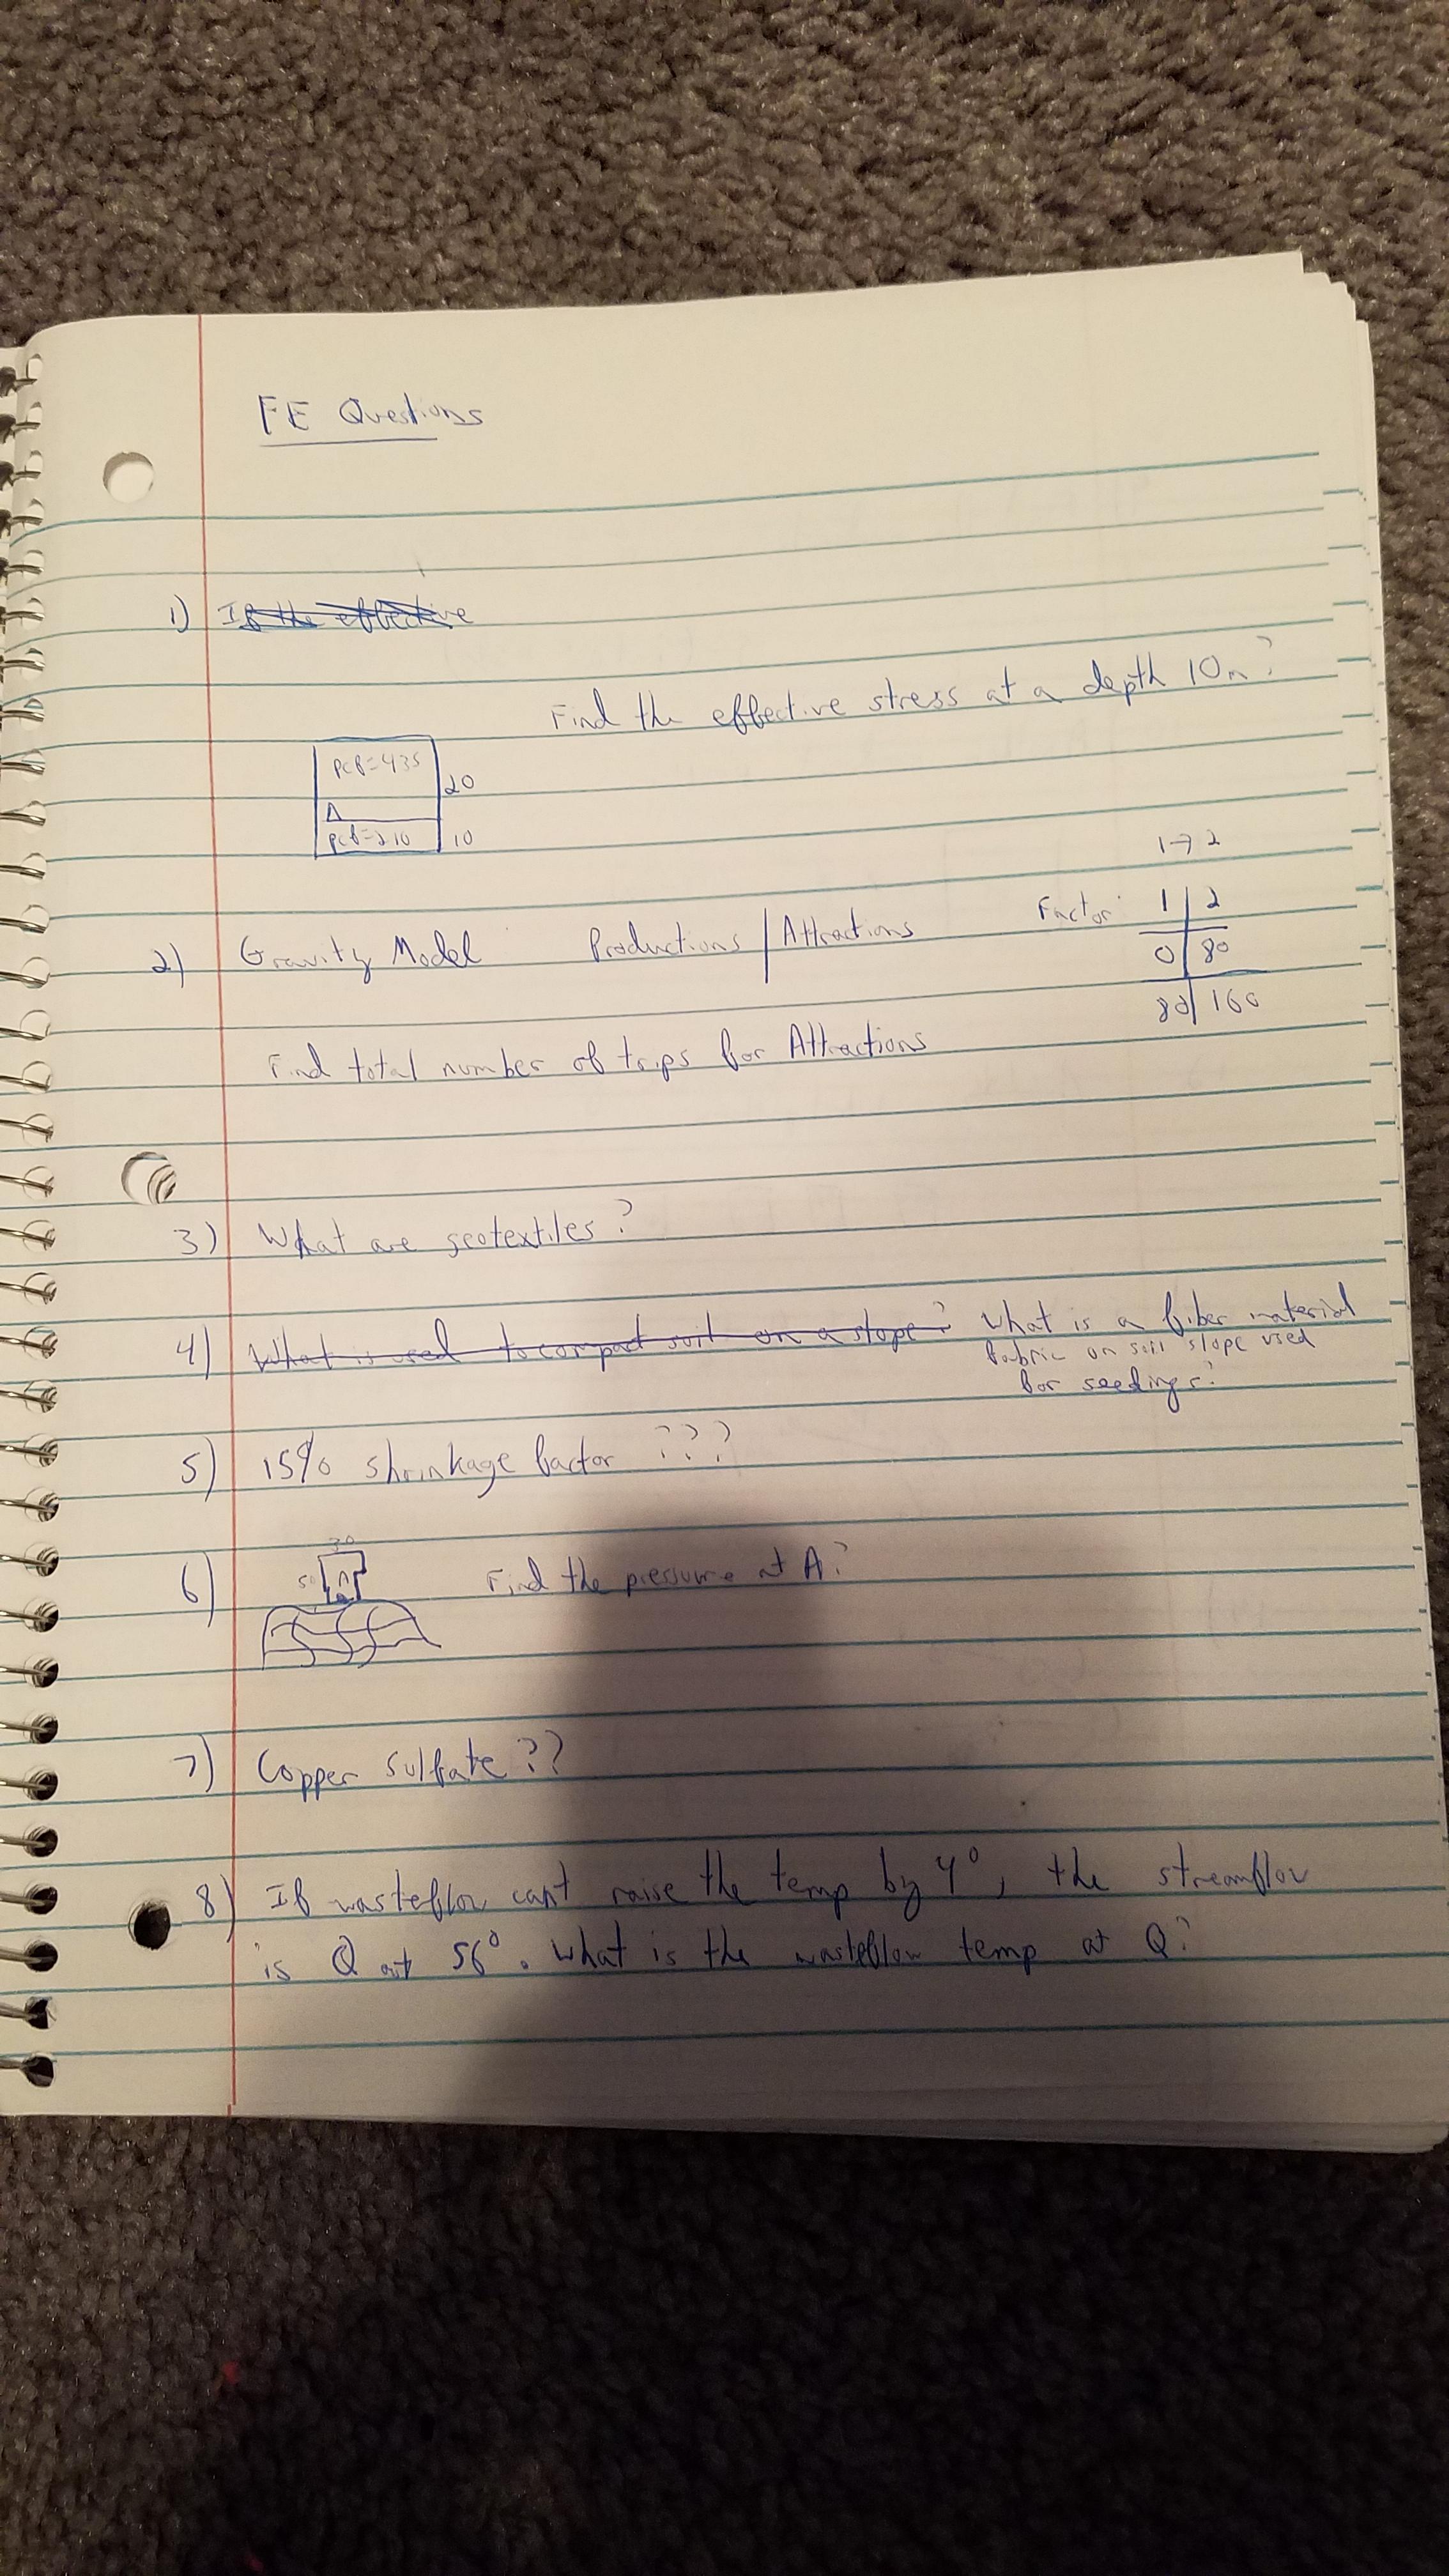 FE Questions
1) If the effective
Find the effective stress at a depth 10m?
pcf=435
20
pcf=210
10
1→2
2) Gravity Model Productions | Attractions Factor: 1 | 2
0 | 80
80 | 160
Find total number of trips for Attractions
3) What are geotextiles?
4) What is used to compact soil on a slope? What is a fiber material
fabric on soil slope used
for seedings?
5) 15% shrinkage factor ???
30
6) 50 A Find the pressure at A?
7) Copper sulfate??
8) If wasteflow can't raise the temp by 4°, the streamflow
is Q at 56°. What is the wasteflow temp at Q?